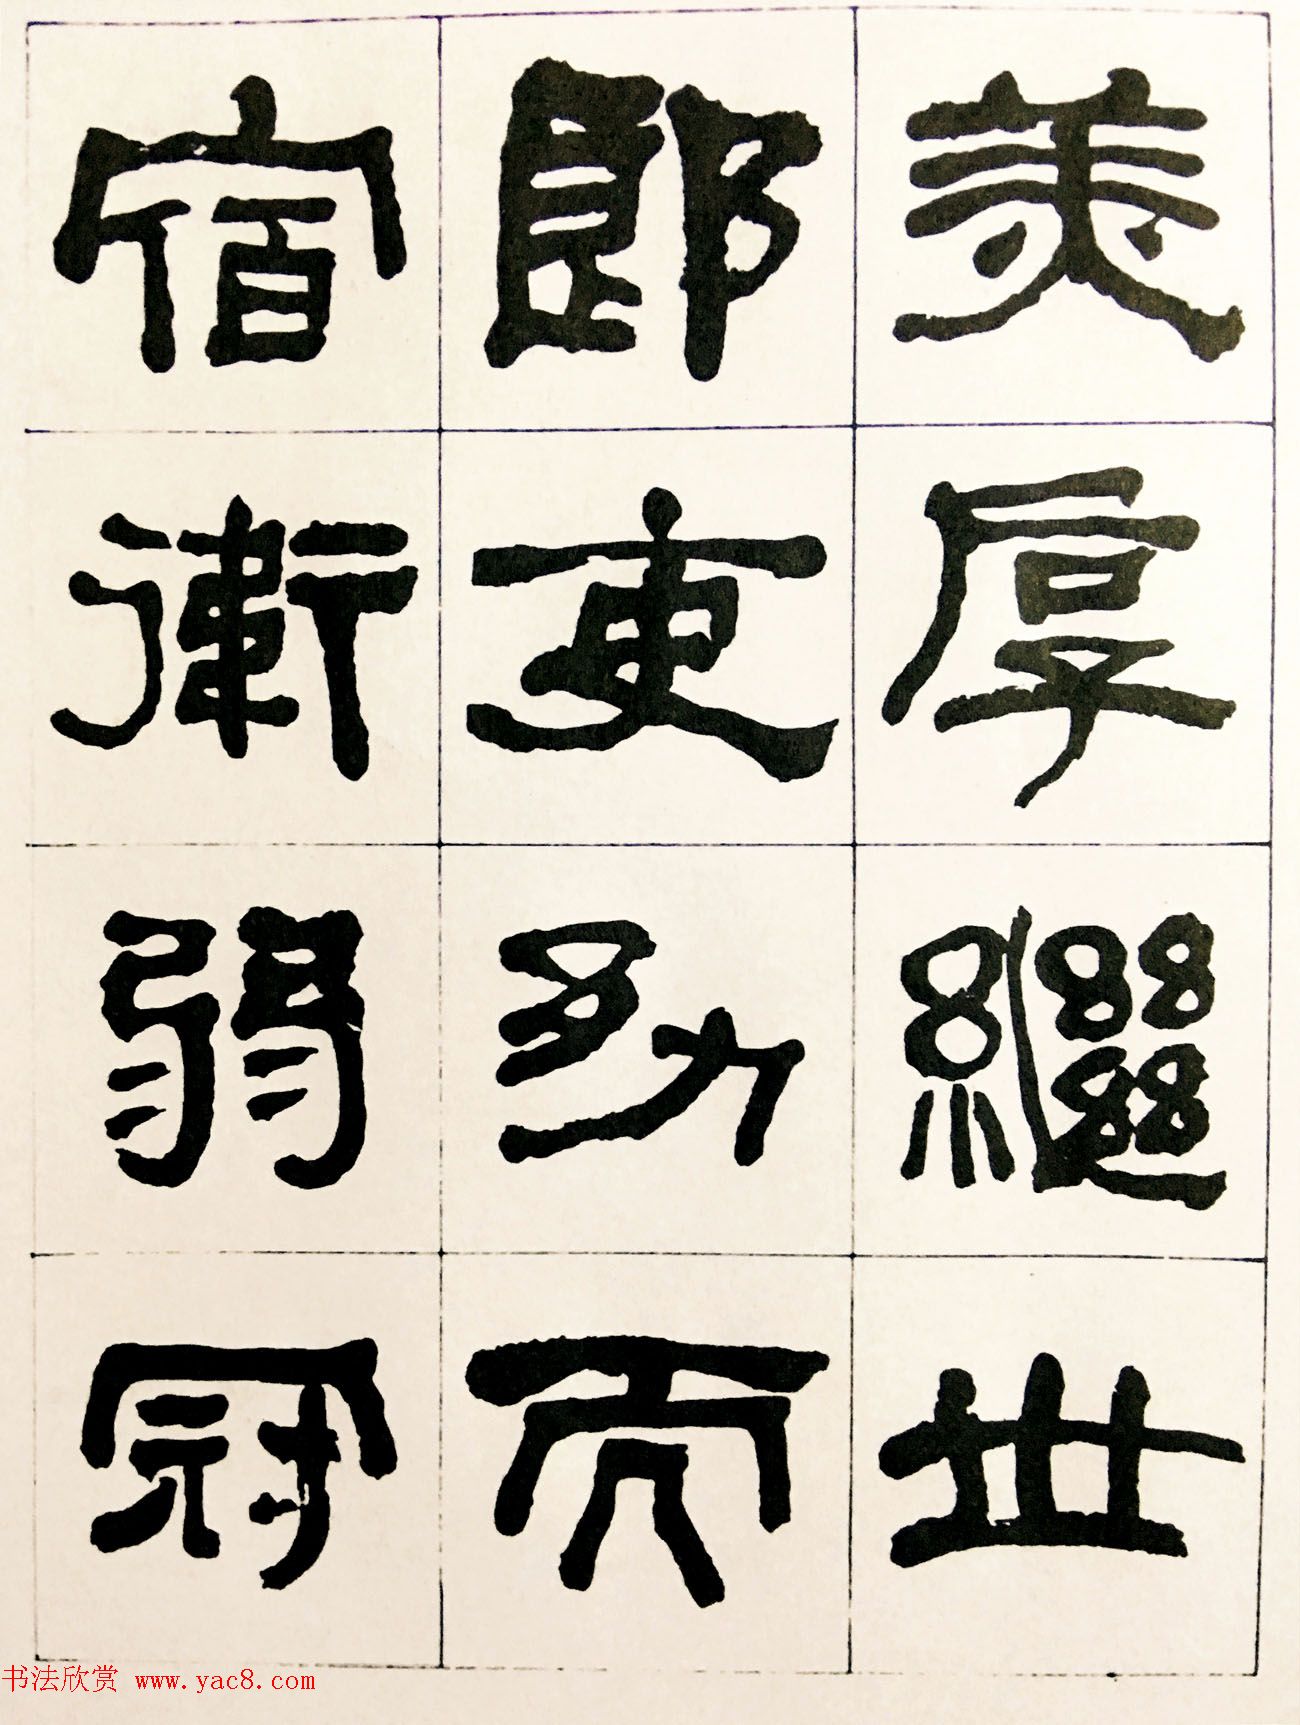 美厚繼世
郎吏幼而
宿衛弱冠
书法欣赏 www.yac8.com